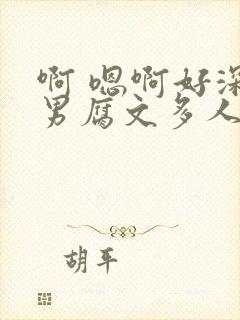 啊 嗯啊好深
男腐文多人
胡平